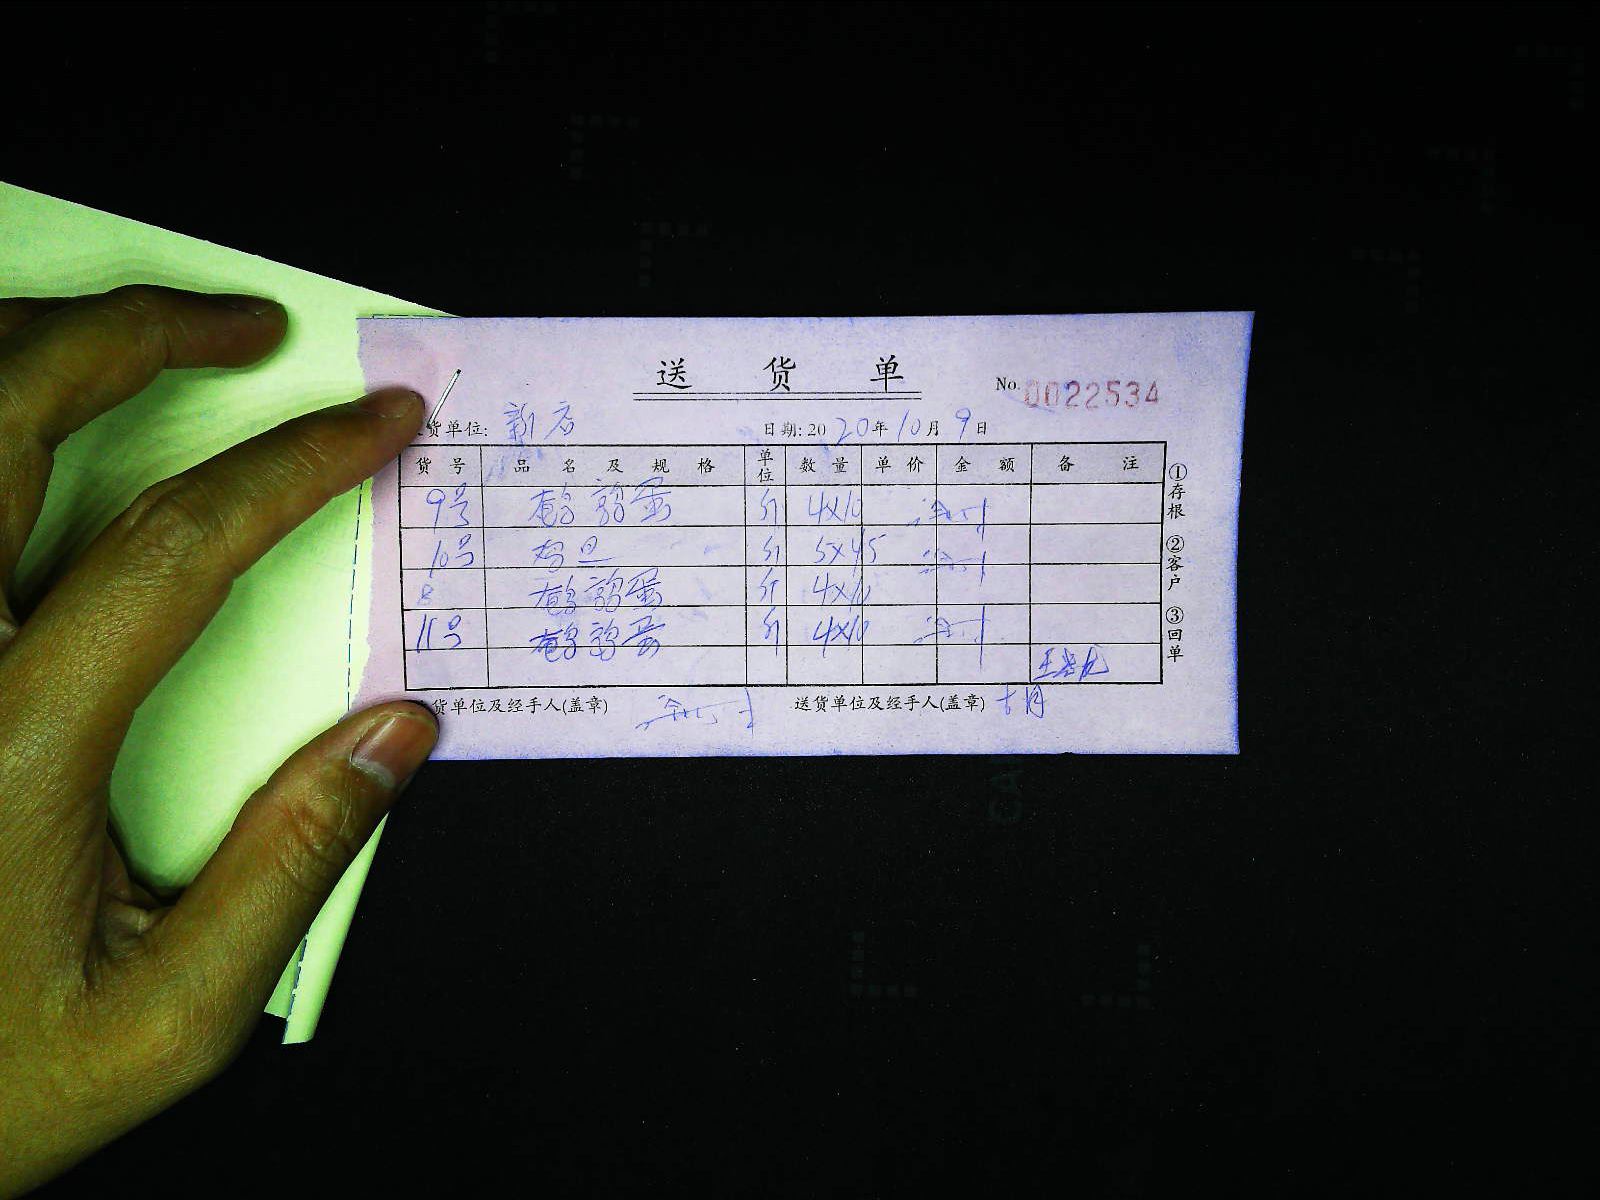 送 货 单
No. 0022534
货单位: 新店 日期: 2020年10月9日
货号 品名及规格 单位 数量 单价 金额 备注
9号 鹌鹑蛋 斤 4×10
10号 鸡旦 斤 5×45
8 鹌鹑蛋 斤 4×10
11号 鹌鹑蛋 斤 4×10
货单位及经手人(盖章) 送货单位及经手人(盖章)
①存根 ②客户 ③回单